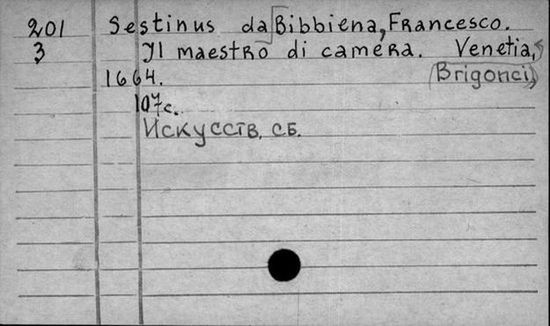 201 Sestinus da Bibbiena, Francesco.
3 Il maestro di camera. Venetia,
1664. (Brigonci)
107 c.
Искусств. сб.